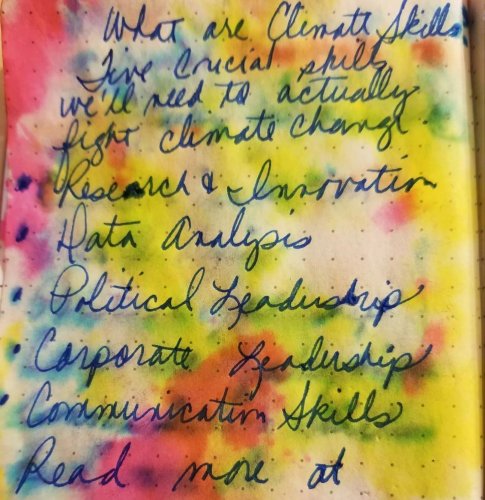 What are Climate Skills
Five crucial skills
we'll need to actually
fight climate change
• Research & Innovation
• Data Analysis
• Political Leadership
• Corporate Leadership
• Communication Skills
Read more at